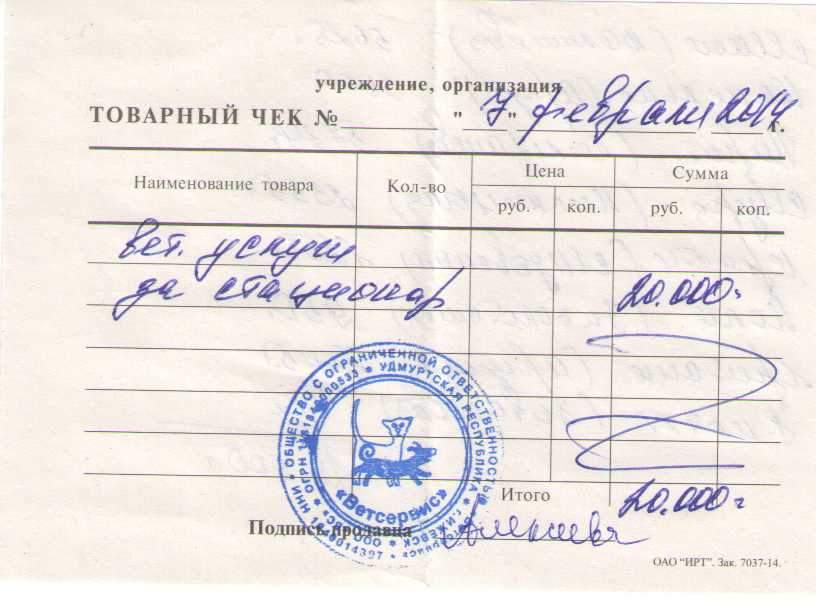 учреждение, организация
ТОВАРНЫЙ ЧЕК № "7" февраля 2014 г.
Наименование товара Кол-во Цена Сумма
руб. коп. руб. коп.
вет. услуги
да стационар 20.000=
Итого 20.000=
Подпись продавца
ОБЩЕСТВО С ОГРАНИЧЕННОЙ ОТВЕТСТВЕННОСТЬЮ
УДМУРТСКАЯ РЕСПУБЛИКА * Г.ИЖЕВСК
«Ветсервис»
ОГРН
ИНН
ОАО "ИРТ". Зак. 7037-14.